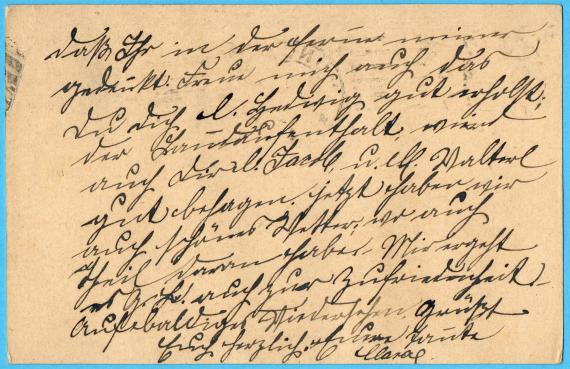 daß Ihr in der Ferne meiner
gedenkt. Freue mich auch das
Du Dich l. Hedwig gut erholst;
der Landaufenthalt wird
auch Dir l. Jacob, u. lb. Walterl
gut behagen. Jetzt haben wir
auch schönes Wetter, wo auch
Theil daran habe. Mir ergeht
es auch zur Zufriedenheit.
Auf baldiges Wiedersehen Grüßt
Euch herzlich Eure Tante
Clara.